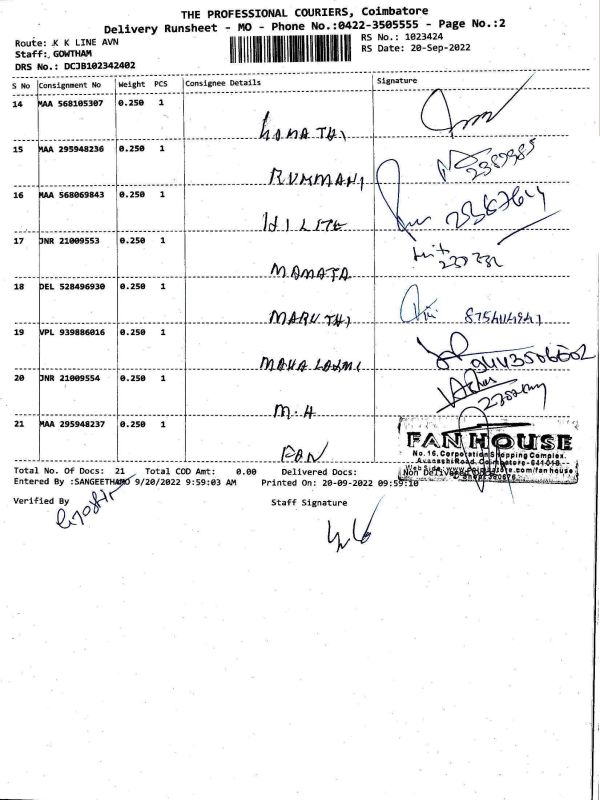 THE PROFESSIONAL COURIERS, Coimbatore
Delivery Runsheet - MO - Phone No.:0422-3505555 - Page No.:2
Route: .K K LINE AVN
RS No.: 1023424
Staff: GOWTHAM
RS Date: 20-Sep-2022
DRS No.: DCJB102342402
S No Consignment No Weight PCS Consignee Details Signature
14 MAA 568105307 0.250 1
GOMATHI
15 MAA 295948236 0.250 1
RUKMANI
16 MAA 568069843 0.250 1
HILITE
17 JNR 21009553 0.250 1
MAMATA
18 DEL 528496930 0.250 1
MARUTHI
19 VPL 939886016 0.250 1
MAHA LAXMI
20 JNR 21009554 0.250 1
M.H
21 MAA 295948237 0.250 1
FAN
FAN HOUSE
No.16, Corporation Shopping Complex,
Avanashi Road, Coimbatore-641018
Total No. Of Docs: 21 Total COD Amt: 0.00 Delivered Docs: Non Delivered
Entered By :SANGEETHAMO 9/20/2022 9:59:03 AM Printed On: 20-09-2022 09:59:10
Verified By Staff Signature